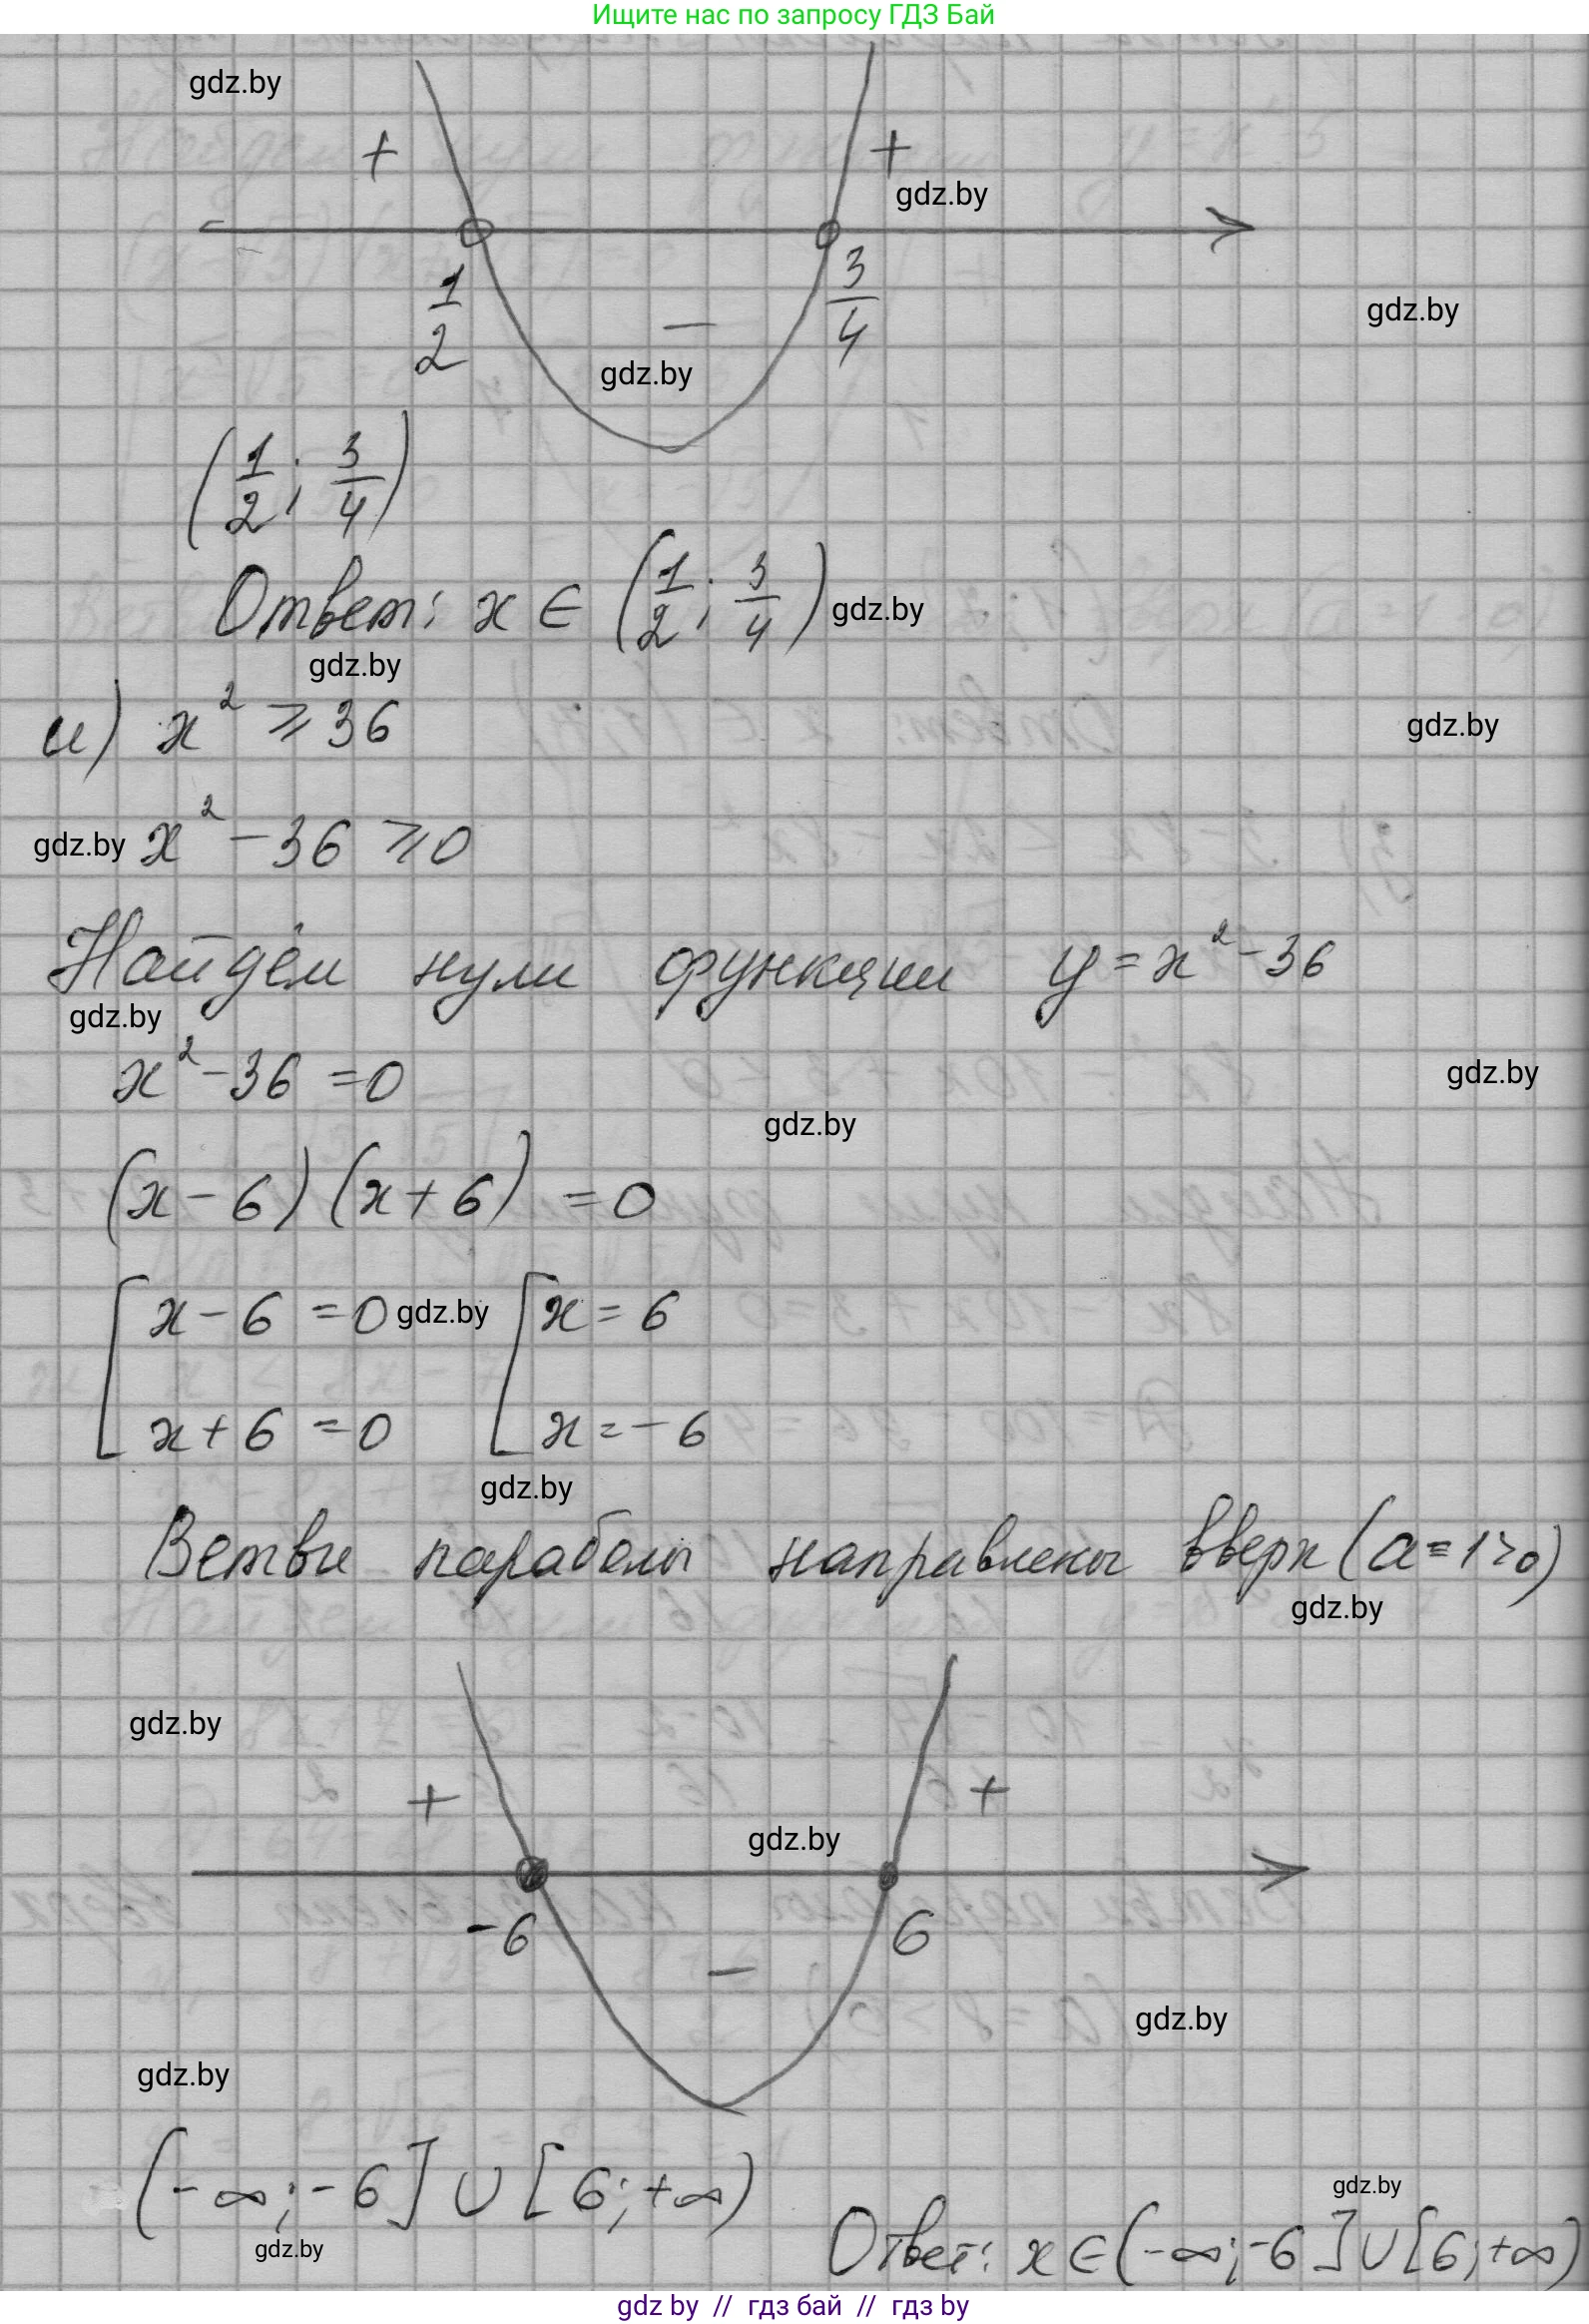 Ищите нас по запросу ГДЗ Бай
gdz.by
+ +
gdz.by
1/2 3/4
gdz.by
−
gdz.by
(1/2; 3/4)
Ответ: x ∈ (1/2; 3/4)
gdz.by
gdz.by
и) x² ⩾ 36
gdz.by
gdz.by
x² − 36 ⩾ 0
Найдём нули функции y = x² − 36
gdz.by
x² − 36 = 0
gdz.by
gdz.by
(x − 6)(x + 6) = 0
[x − 6 = 0 gdz.by [x = 6
x + 6 = 0 x = −6
gdz.by
Ветви параболы направлены вверх (a = 1 > 0)
gdz.by
gdz.by
+ +
gdz.by
−6 6
−
gdz.by
gdz.by
(−∞; −6] ∪ [6; +∞)
gdz.by
gdz.by
Ответ: x ∈ (−∞; −6] ∪ [6; +∞)
gdz by // гдз бай // гдз by